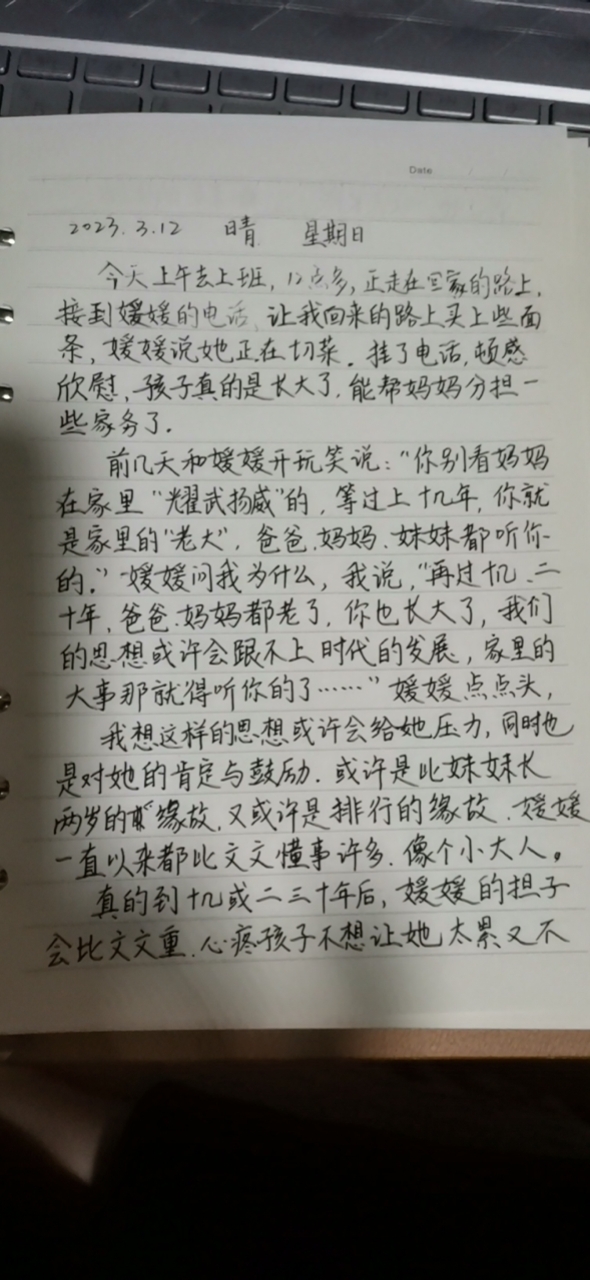 Date
2023.3.12 晴 星期日
今天上午去上班,12点多,正走在回家的路上,
接到媛媛的电话,让我回来的路上买上些面
条,媛媛说她正在切菜。挂了电话,顿感
欣慰,孩子真的是长大了,能帮妈妈分担一
些家务了。
前几天和媛媛开玩笑说:“你别看妈妈
在家里“耀武扬威”的,等过上十几年,你就
是家里的“老大”,爸爸、妈妈、妹妹都听你
的。”媛媛问我为什么,我说,“再过十几、二
十年,爸爸、妈妈都老了,你也长大了,我们
的思想或许会跟不上时代的发展,家里的
大事那就得听你的了……”媛媛点点头,
我想这样的思想或许会给她压力,同时也
是对她的肯定与鼓励。或许是比妹妹长
两岁的缘故,又或许是排行的缘故,媛媛
一直以来都比文文懂事许多,像个小大人。
真的到十几或二三十年后,媛媛的担子
会比文文重,心疼孩子不想让她太累又不